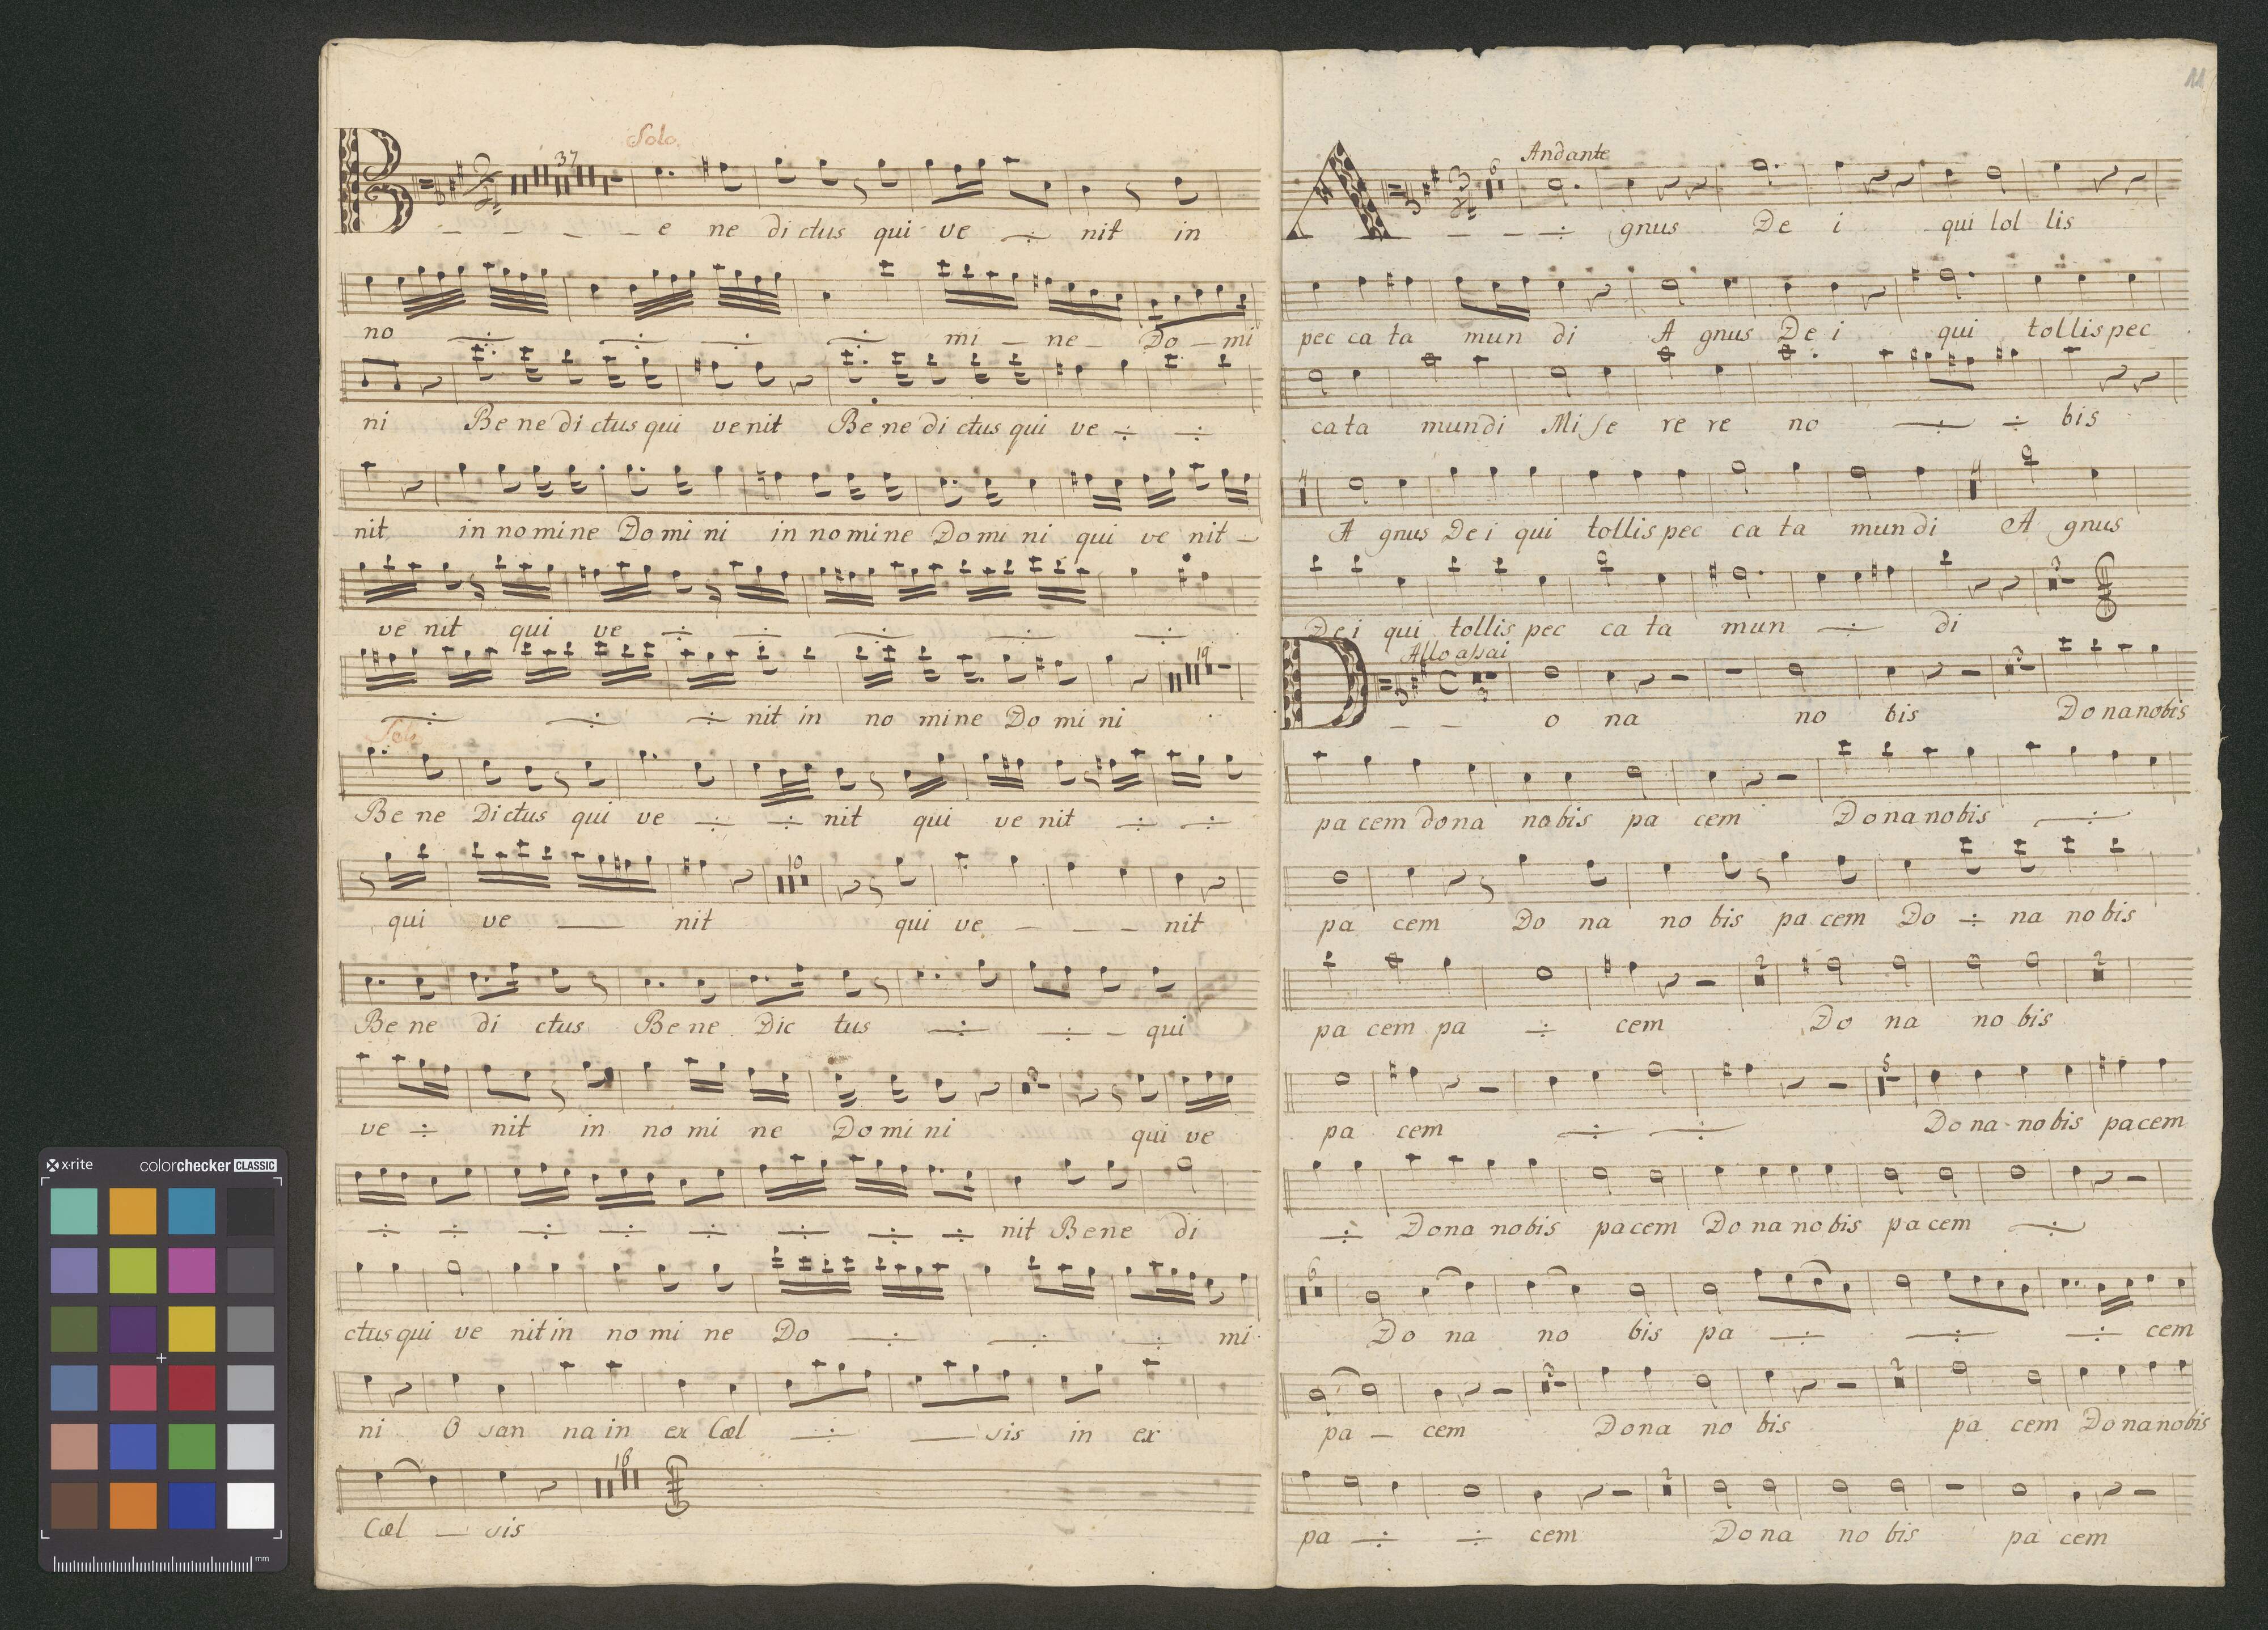 Solo
37
B e ne dictus qui ve nit in
no mi ne Do mi
ni Be ne di ctus qui ve nit Be ne di ctus qui ve
nit in no mi ne Do mi ni in no mi ne Do mi ni qui ve nit
ve nit qui ve
19
nit in no mi ne Do mi ni
Solo
Be ne Di ctus qui ve nit qui ve nit
10
qui ve nit qui ve nit
Be ne di ctus Be ne Dic tus qui
2
ve nit in no mi ne Do mi ni qui ve
nit Be ne di
ctus qui ve nit in no mi ne Do mi
ni O san na in ex Cæl sis in ex
18
Cæl sis
11
Andante
3 6
A gnus De i qui lol lis
pec ca ta mun di A gnus De i qui tol lis pec
ca ta mun di Mi se re re no bis
A gnus De i qui tol lis pec ca ta mun di A gnus
2
De i qui tol lis pec ca ta mun di
Allo assai
C 3 2
D o na no bis Do na no bis
pa cem do na no bis pa cem Do na no bis
pa cem Do na no bis pa cem Do na no bis
2 2
pa cem pa cem Do na no bis
5
pa cem Do na no bis pa cem
Do na no bis pa cem Do na no bis pa cem
6
Do na no bis pa cem
2 2
pa cem Do na no bis pa cem Do na no bis
2
pa cem Do na no bis pa cem
x·rite colorchecker CLASSIC
mm